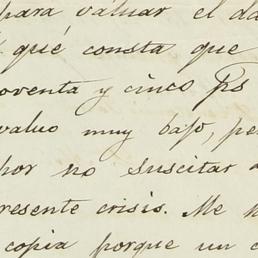 para valuar el da
qué consta que
oventa y cinco Ps
valuo muy bajo, pe
por no suscitar
resente crisis. Me
copia porque un c